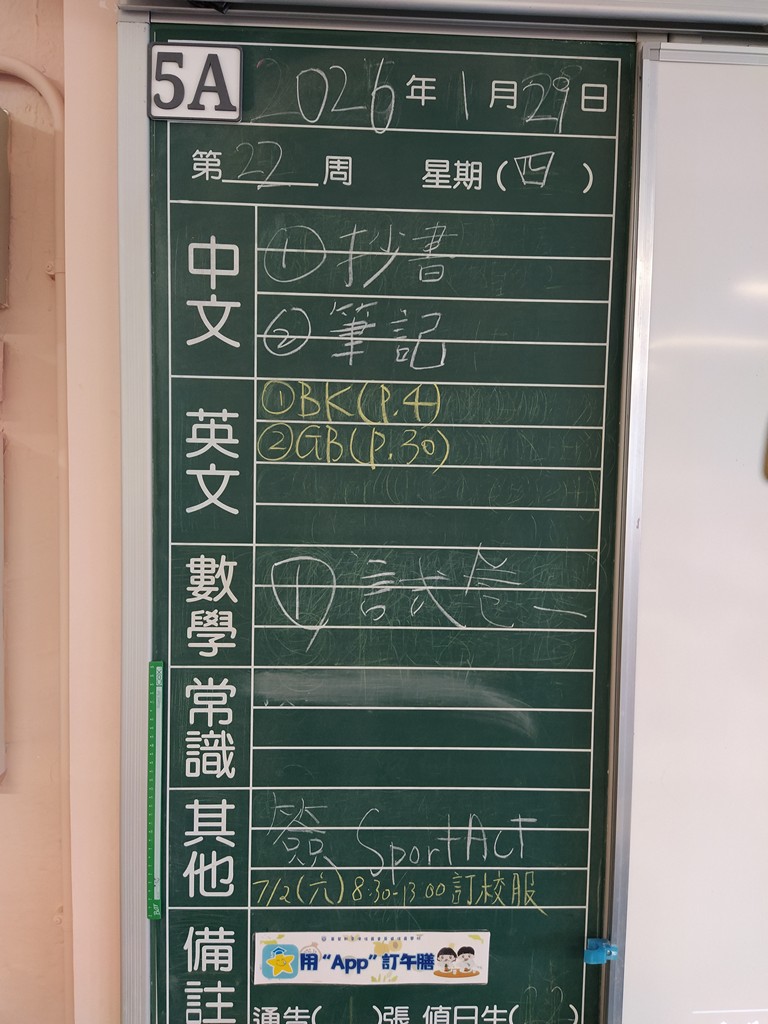 5A
2026年1月29日
第22周 星期(四)
中文
①抄書
②筆記
英文
①BK(P.4)
②GB(P.30)
數學
①試卷一
常識
其他
簽 SportACT
7/2(六) 8:30-13:00訂校服
備註
用“App”訂午膳
通告( )張 值日生(22)